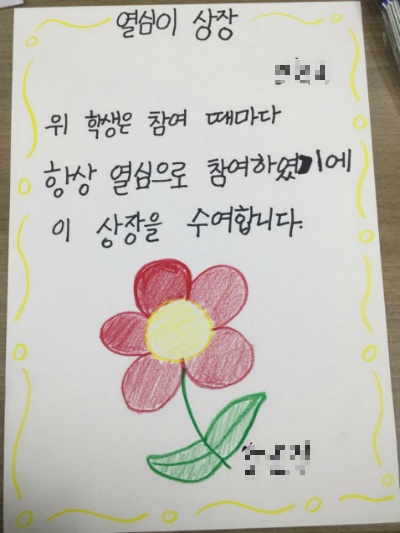 열심이 상장
위 학생은 참여 때마다
항상 열심으로 참여하였기에
이 상장을 수여합니다.